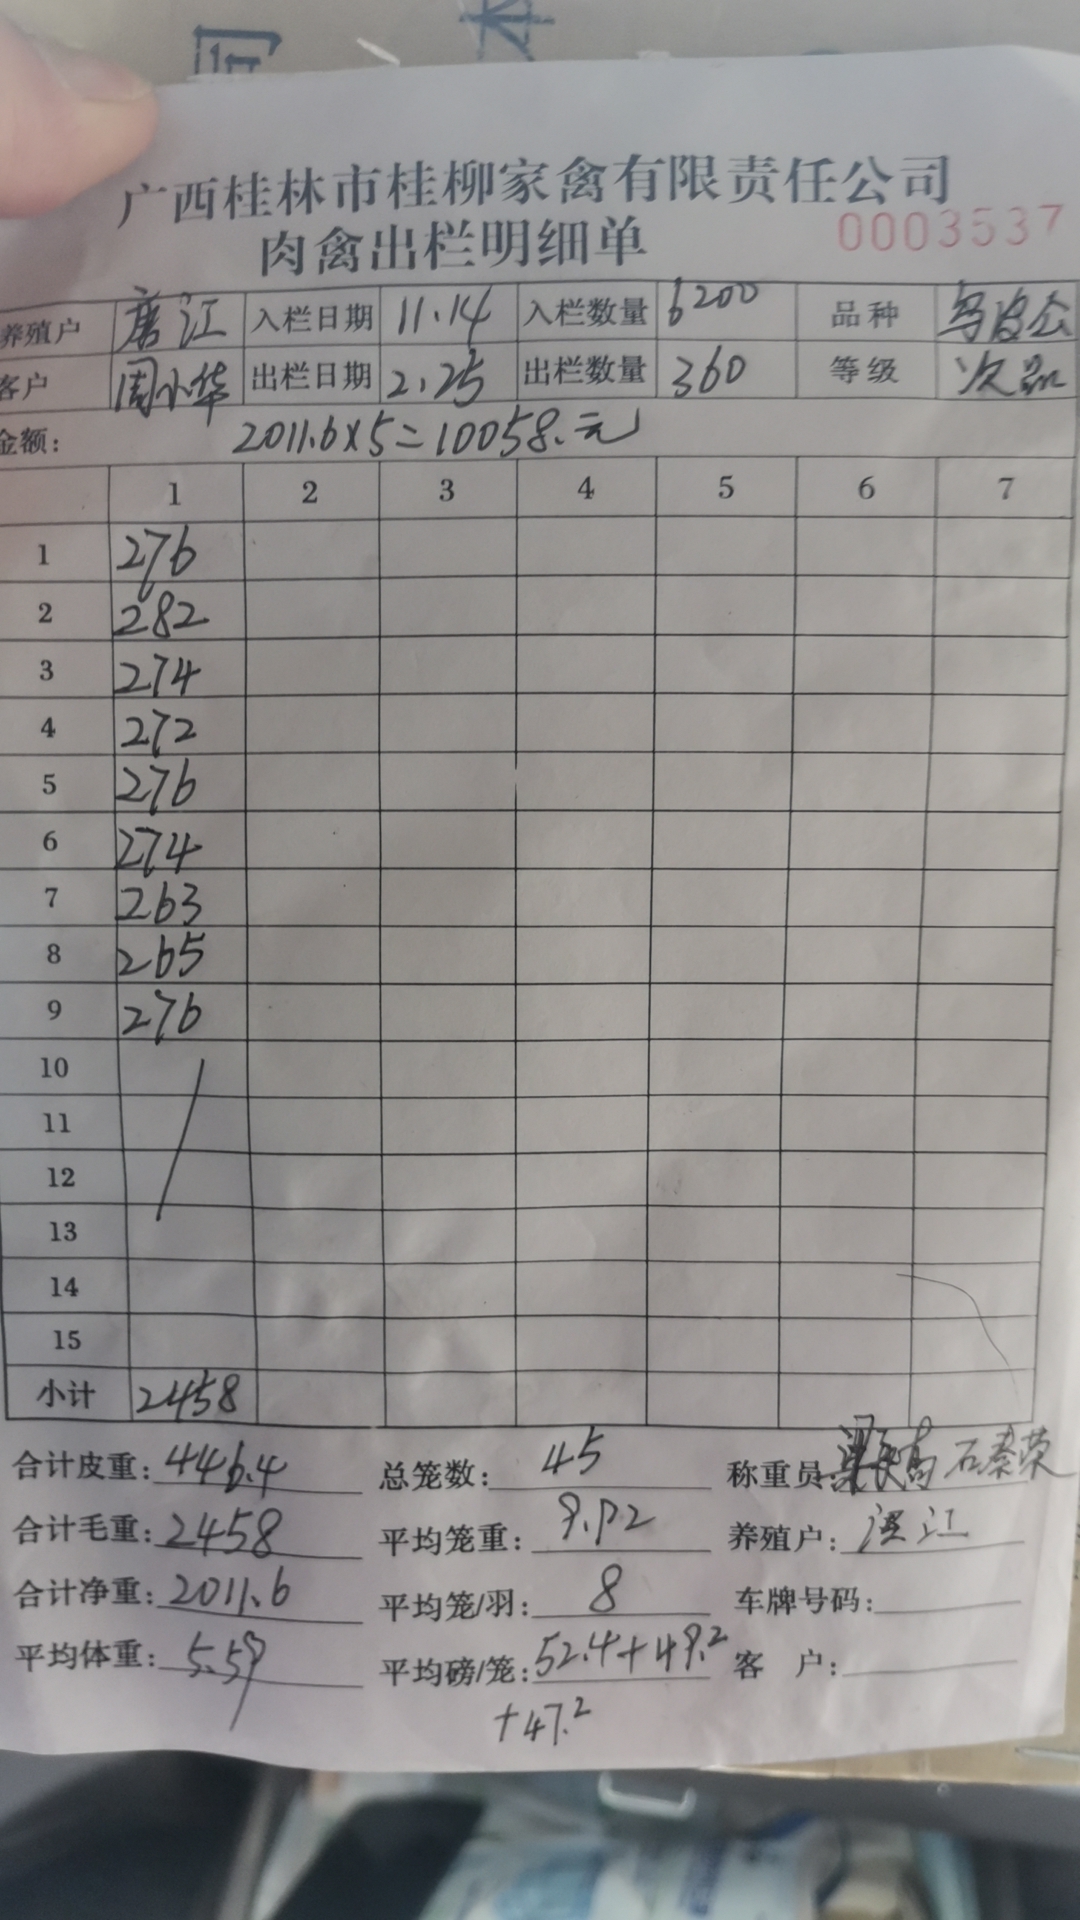 广西桂林市桂柳家禽有限责任公司
肉禽出栏明细单 0003537
养殖户 唐江 入栏日期 11.14 入栏数量 6200 品种 乌皮公
客户 周小华 出栏日期 2.25 出栏数量 360 等级 次品
金额: 2011.6×5=10058.元
1 2 3 4 5 6 7
1 276
2 282
3 274
4 272
5 276
6 274
7 263
8 265
9 276
10
11
12
13
14
15
小计 2458
合计皮重: 446.4 总笼数: 45 称重员: 石秦荣
合计毛重: 2458 平均笼重: 9.92 养殖户: 江
合计净重: 2011.6 平均笼/羽: 8 车牌号码:
平均体重: 5.59 平均磅/笼: 52.4+49.2 客 户:
+47.2